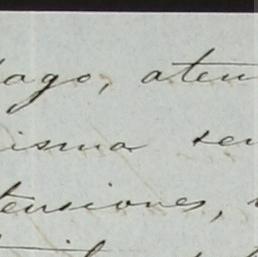 ago, aten
isma sen
tensiones,